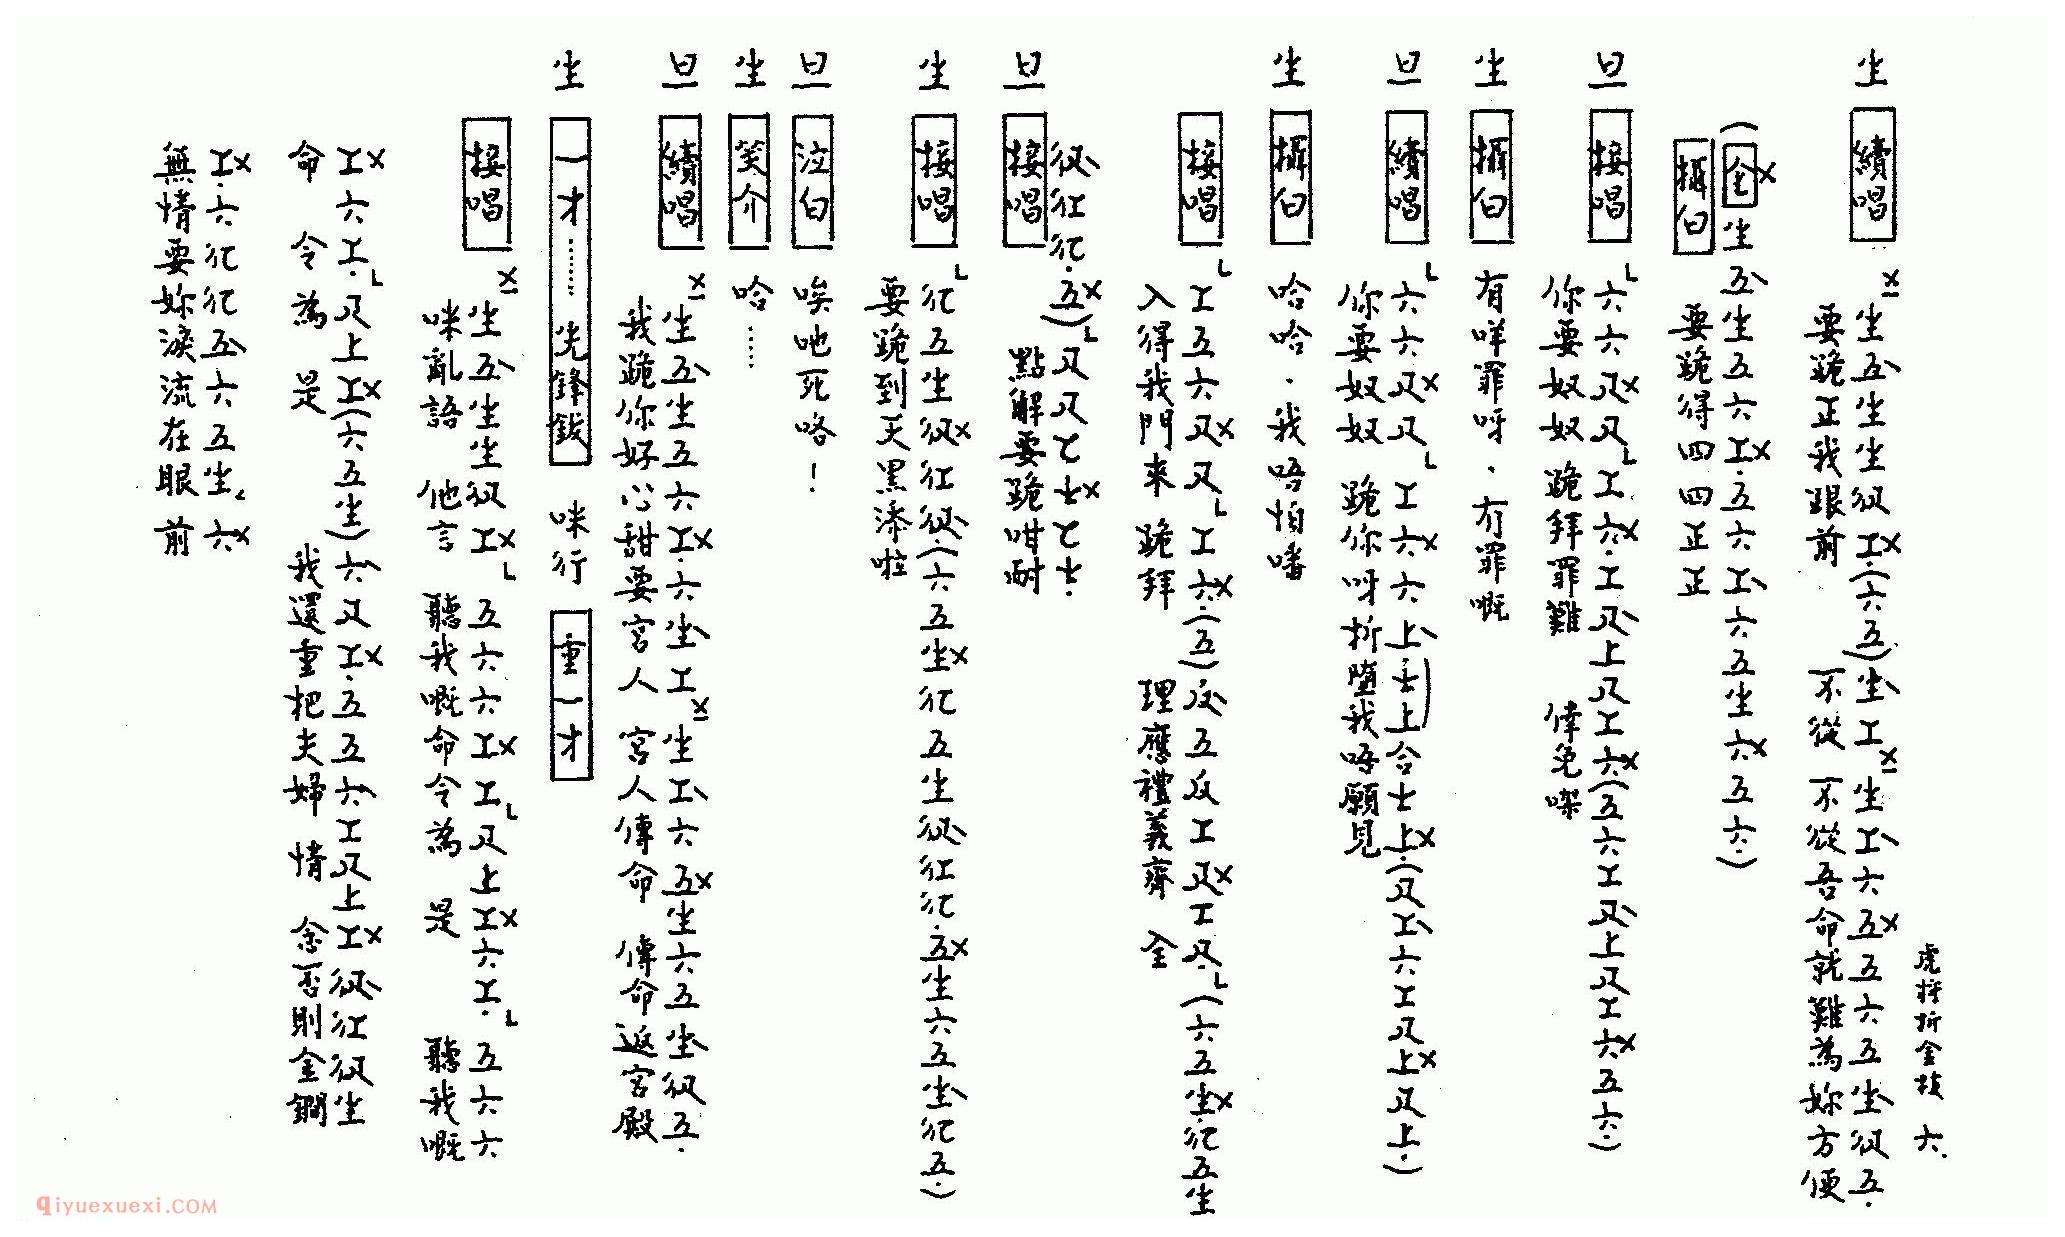 虎掙折金枝 六.
生 續唱 生五生生伬工.(六五)生工 生工六五五六五生伬五.
要跪正我跟前 不從 不從吾命就難為妳方便
(仝生五生五六工.五六工六五生六五六.)
攝白 要跪得四四正正
旦 接唱 六六尺尺工六.工尺上尺工六(五六工尺上尺工六五六.)
你要奴奴跪拜罪難 倖免㗎
生 攝白 有咩罪呀.有罪嘅
旦 續唱 六六尺尺工六六上士上合士上.(尺工六工尺上尺上.)
你要奴奴 跪你呀折墮我唔願見
生 攝白 哈哈.我唔怕噃
接唱 工五六尺尺工六.(五)反五反工尺工尺.(六五生仩五生
入得我門來 跪拜 理應禮義齊全
伬仜仩.五)尺尺乙士乙士.
旦 接唱 點解要跪咁耐
生 接唱 仩五生伬仜伬(六五生仩五生伬仜仩.五生六五生仩五.)
要跪到天黑添啦
旦 泣白 唉吔死咯!
生 笑介 哈……
旦 續唱 生五生五六工.六生工 生工六五生六五生伬五.
我跪你好心甜要宮人 宮人傳命 傳命返宮殿
生 一才……先鋒鈸 咪行 重一才
接唱 生五生生伬工 五六六工工尺上工六工. 五六六
咪亂語 他言 聽我嘅命令為 是 聽我嘅
工六工.尺上工(六五生)六尺工.五五六工尺上工伬仜伬生
命 令 為 是 我還重把夫婦 情 念否則金鐧
工.六仩仩五六五生.六
無情要妳淚流在眼前
qiyuexuexi.COM